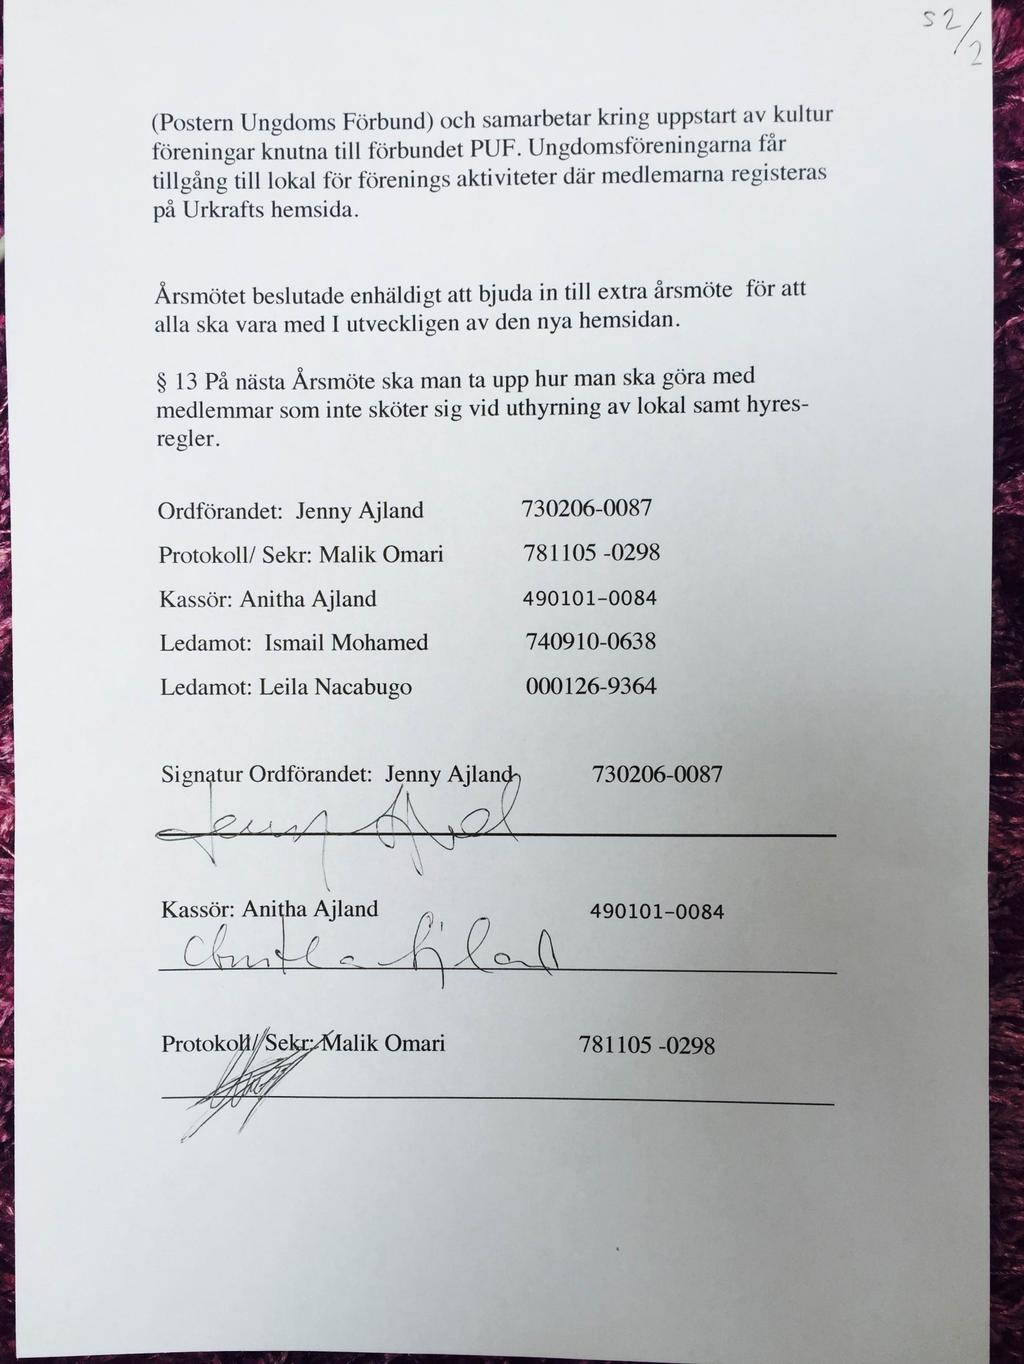 s 2/2
(Postern Ungdoms Förbund) och samarbetar kring uppstart av kultur
föreningar knutna till förbundet PUF. Ungdomsföreningarna får
tillgång till lokal för förenings aktiviteter där medlemarna registeras
på Urkrafts hemsida.
Årsmötet beslutade enhäldigt att bjuda in till extra årsmöte för att
alla ska vara med I utveckligen av den nya hemsidan.
§ 13 På nästa Årsmöte ska man ta upp hur man ska göra med
medlemmar som inte sköter sig vid uthyrning av lokal samt hyres-
regler.
Ordförandet: Jenny Ajland 730206-0087
Protokoll/ Sekr: Malik Omari 781105 -0298
Kassör: Anitha Ajland 490101-0084
Ledamot: Ismail Mohamed 740910-0638
Ledamot: Leila Nacabugo 000126-9364
Signatur Ordförandet: Jenny Ajland 730206-0087
Kassör: Anitha Ajland 490101-0084
Anitha Ajland
Protokoll/ Sekr: Malik Omari 781105 -0298